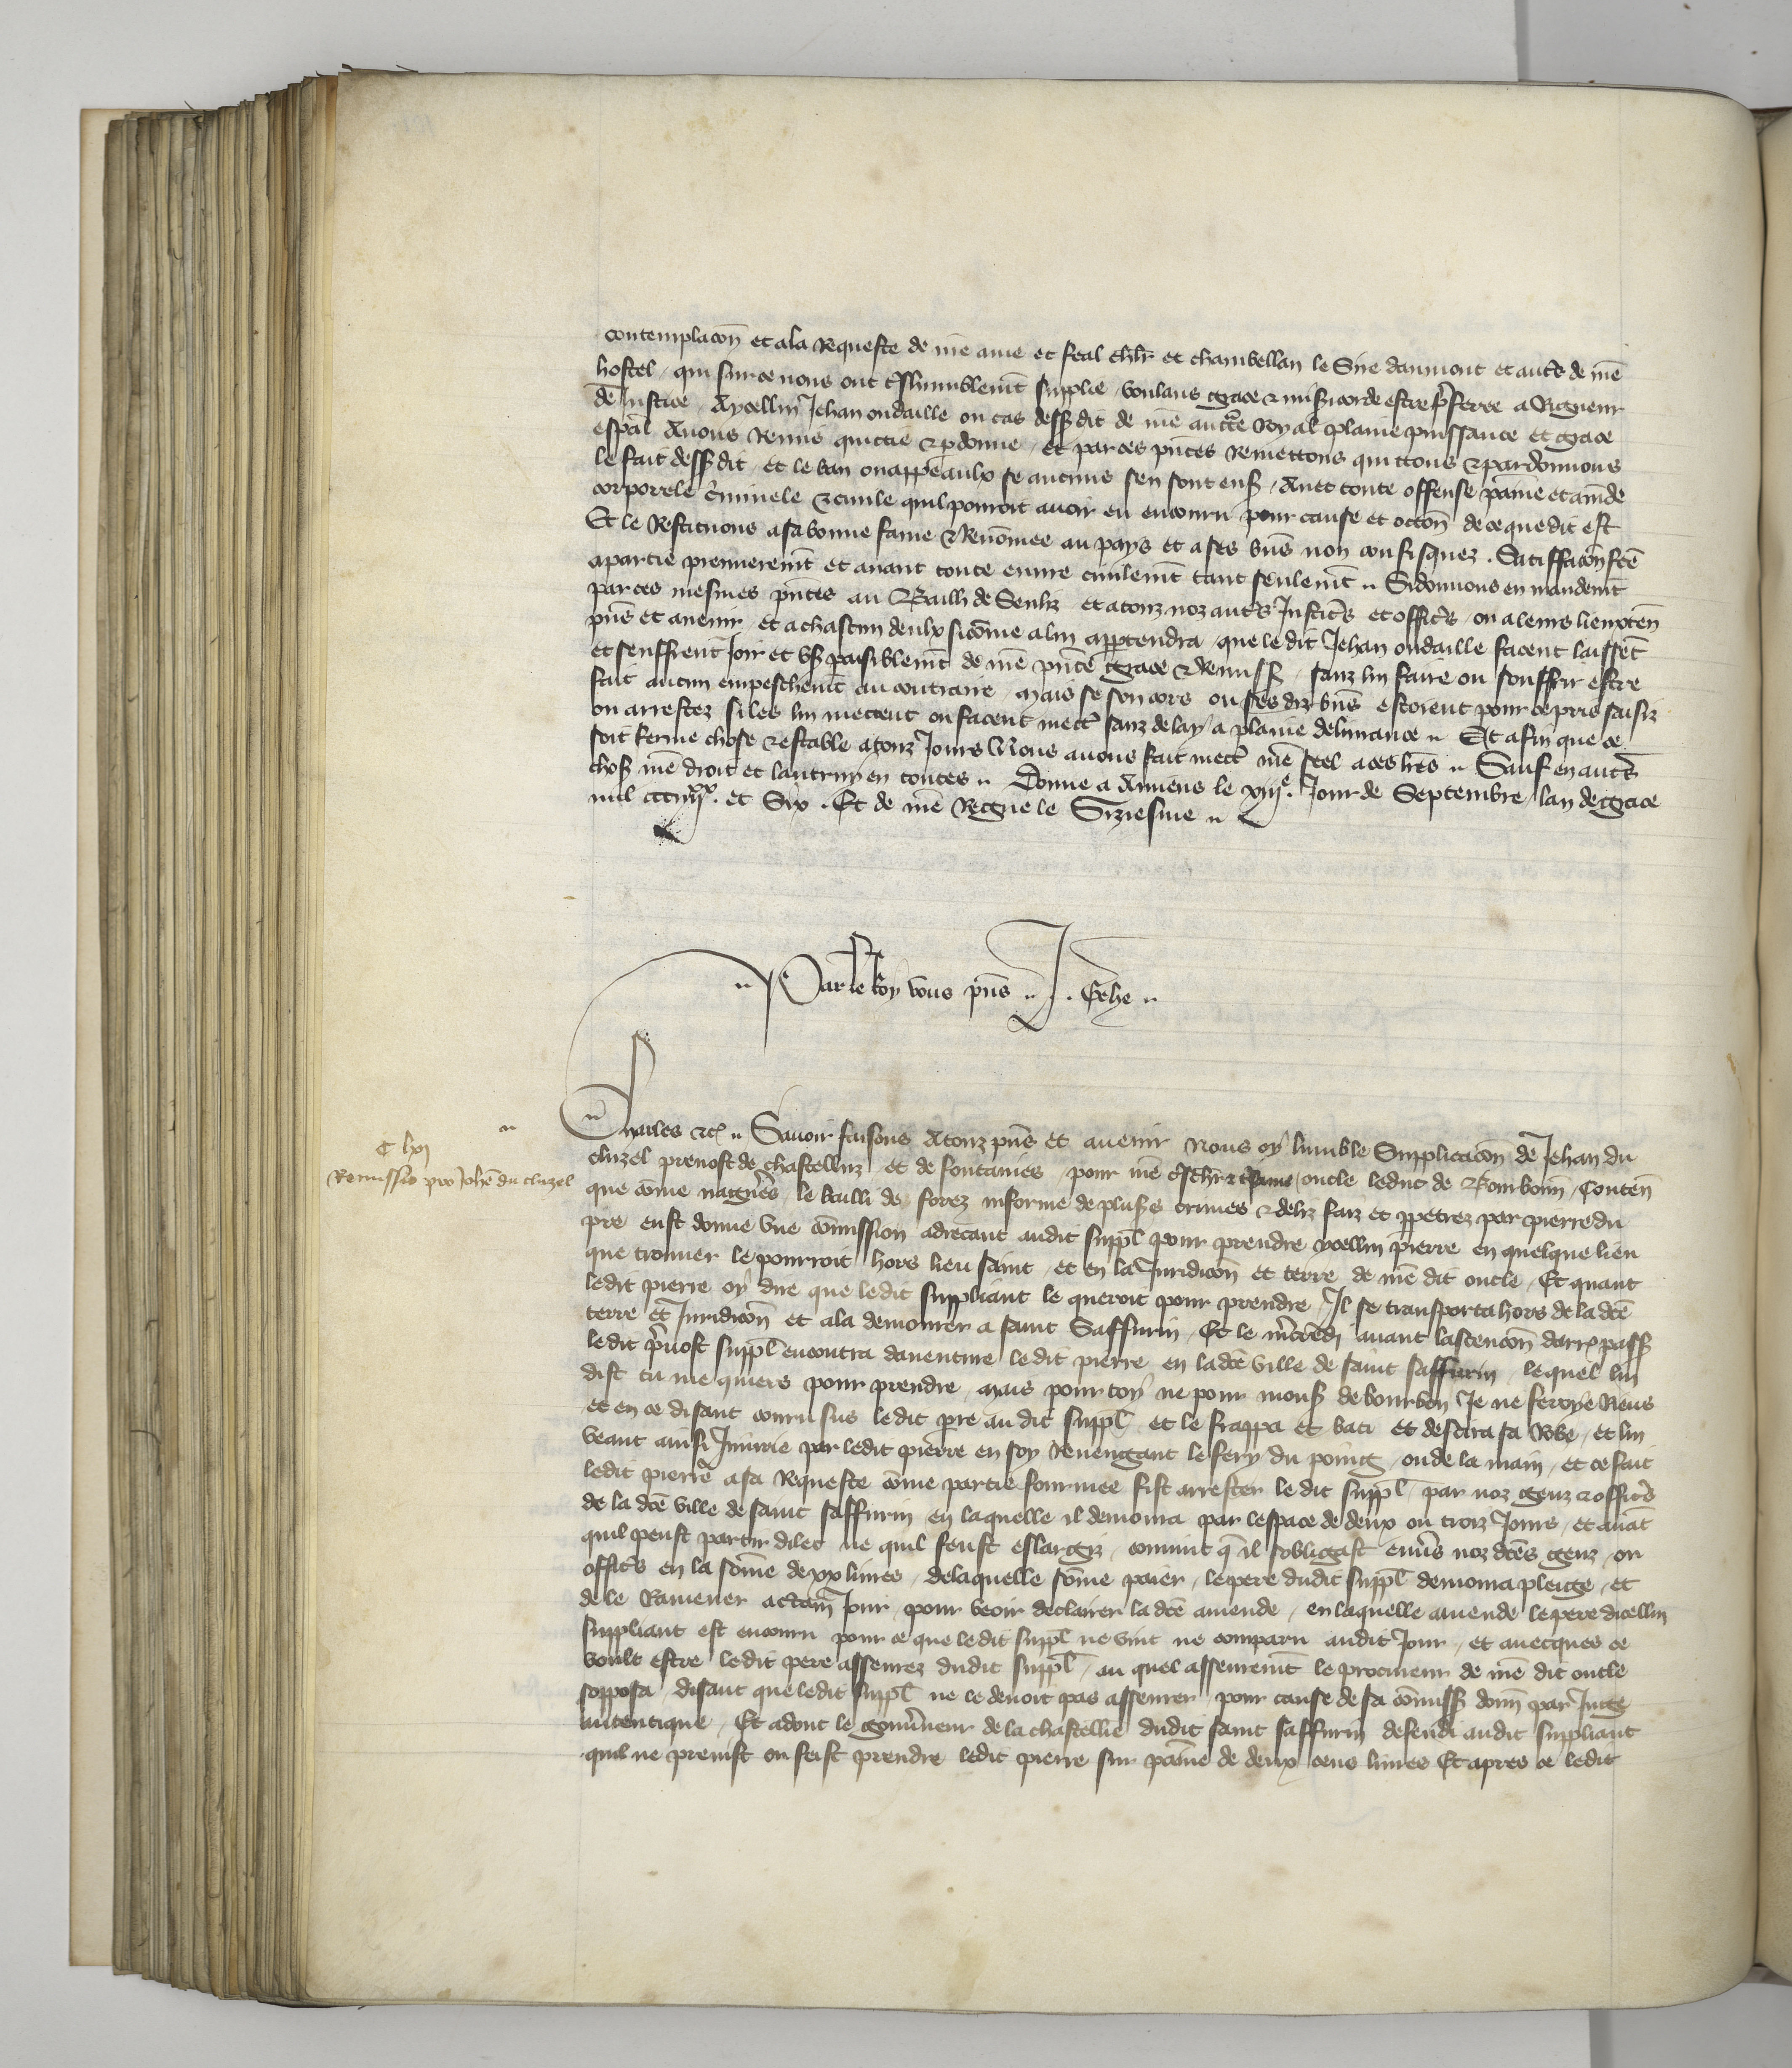 contemplacon et a la Requeste de nre ame et feal chlr et chambellan le Sire daumont et autres de nre
hostel, qui sur ce nous ont treshumblemt supplie, voulans grace & misericorde estre preferee a Rigueur
de Justice, A ycellui Jehan oudaille ou cas dessusdit de nre auctte Royal plaine puissance et grace
espal Avons Remis quictie & pardonne, et par ces pntes Remettons quittons & pardonnons
le fait dessusdit, et le ban ou appeaulx se aucuns sen sont ensuis, Avec toute offense paine et amde
corporele criminele & civile quil pourroit avoir en encouru pour cause et occon de ce que dit est
Et le Restituons a sa bonne fame & Renommee au pays et a ses biens non confisquez. Satiffacon fcte
a partie premierement et avant toute euvre civilemt tant seulemt. Si donnons en mandemt
par ces mesmes pntes au Bailli de Senliz et a touz noz autres Justicrs et officrs, ou a leurs lieuxten
pns et avenir et a chascun deulx si come a lui appartendra, que ledit Jehan oudaille facent laissent
et seuffrent Joir et user paisiblemt de nre pnte grace & Remission, sanz lui faire ou souffrir estre
fait aucun empeschemt au contraire, Mais se son cors ou ses diz biens estoient pour ce pris saisiz
ou arrestez si les lui mectent ou facent mectre sanz delay a plaine delivrance. Et afin que ce
soit ferme chose & estable a touz Jours Nous avons fait mectre nre seel a ces lres. Sauf en autres
choses nre droit et lautruy en toutes. Donne a Amiens le xiiie. Jour de Septembre, lan de grace
mil ccciiiixx. et Six. Et de nre Regne le Siziesme.
Par le Roy vous pns. J. Gehe.
Charles &c. Savoir faisons A touz pns et avenir Nous oy lumble Supplicacon de Jehan du
cluzel prevost de chastelluz et de fontanies, pour nre treschier & tresame oncle le duc de Bourbonn, Conten
C lxi
Remissio pro Johe du cluzel
que come nagueres le bailli de forez informe de pluss crimes & deliz faiz et ppetrez par pierre du
pre eust donne une commission adrecant audit suppl pour prendre ycellui pierre en quelque lieu
que trouver le pourroit hors lieu saint, et en la Juridicon et terre de nre dit oncle, Et quant
ledit pierre oy dire que ledit suppliant le queroit pour prendre, Il se transporta hors de la dce
terre et Juridicon et ala demourer a saint Saffurin, Et le mercredi avant lascencon darr passe
ledit prevost suppl encontra daventure ledit pierre en la dce ville de saint saffurin, lequel lui
dist tu me quiers pour prendre, Mais pour toy ne pour mons de bourbon Je ne feroye Riens
et en ce disant couru sus ledit pre audit suppl et le frappa et bati et descira sa Robe, et lui
veant ainsi Injurie par ledit pierre en soy Revengant le fery du poing, ou de la main, et ce fait
ledit pierre a sa Requeste come partie fourmee fist arrester ledit suppl par noz genz & officrs
de la dce ville de saint saffurin en laquelle il demoura par lespace de deux ou trois Jours, et avat
quil peust partir dilec ne quil feust eslargiz, convint q il sobligast envers noz dces genz, ou
officrs en la some de xx livres, de laquelle some paier, le pere dudit suppl demoura pleige, et
de le Ramener a certain Jour pour veoir declairer la dce amende, en laquelle amende le pere dicellui
suppliant est encouru pour ce que ledit suppl ne vint ne comparu audit Jour, et avecques ce
voult estre ledit pere asseurez dudit suppl, au quel asseuremt le procureur de nre dit oncle
sopposa, disant que ledit suppl ne le devoit pas asseurer pour cause de sa commiss donn par Juge
autentique, Et adonc le gouverneur de la chastellie dudit saint saffurin defendi audit suppliant
quil ne preinst ou feist prendre ledit pierre sur paine de deux cens livres Et apres ce ledit